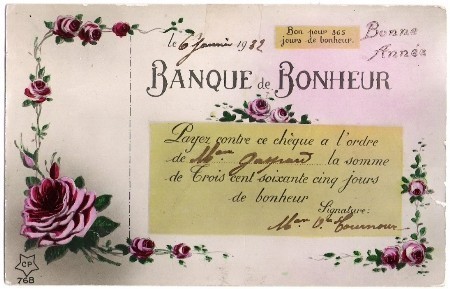 le 6 Janvier 1932
Bon pour 365
jours de bonheur
Bonne
Année
BANQUE de BONHEUR
Payez contre ce chèque a l'ordre
de Mme la somme
de Trois cent soixante cinq jours
de bonheur
Signature:
Mme Vve
CP
768